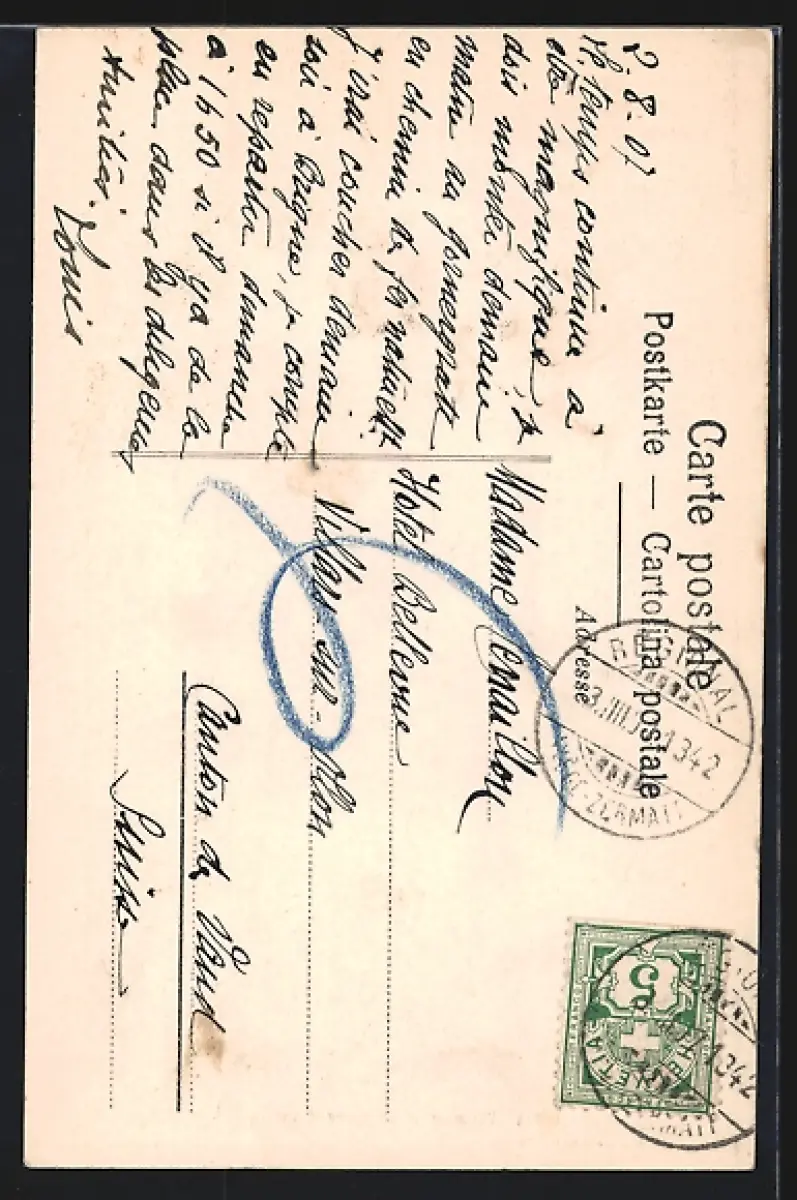 Carte postale
Postkarte — Cartolina postale
Adresse
2.8.07
le temps continue à
être magnifique, je
dois monter demain
matin au gornergratt
en chemin de fer naturellt
J'irai coucher demain
soir à Brigue, je compte
en repartir dimanche
à 1h50 si il y a de la
place dans les diligences
Amitiés.
Louis
Madame
Hotel Bellevue
Villars-sur-Ollon
Canton de Vaud
Suisse
1342
ZERMATT
5
HELVETIA
1342